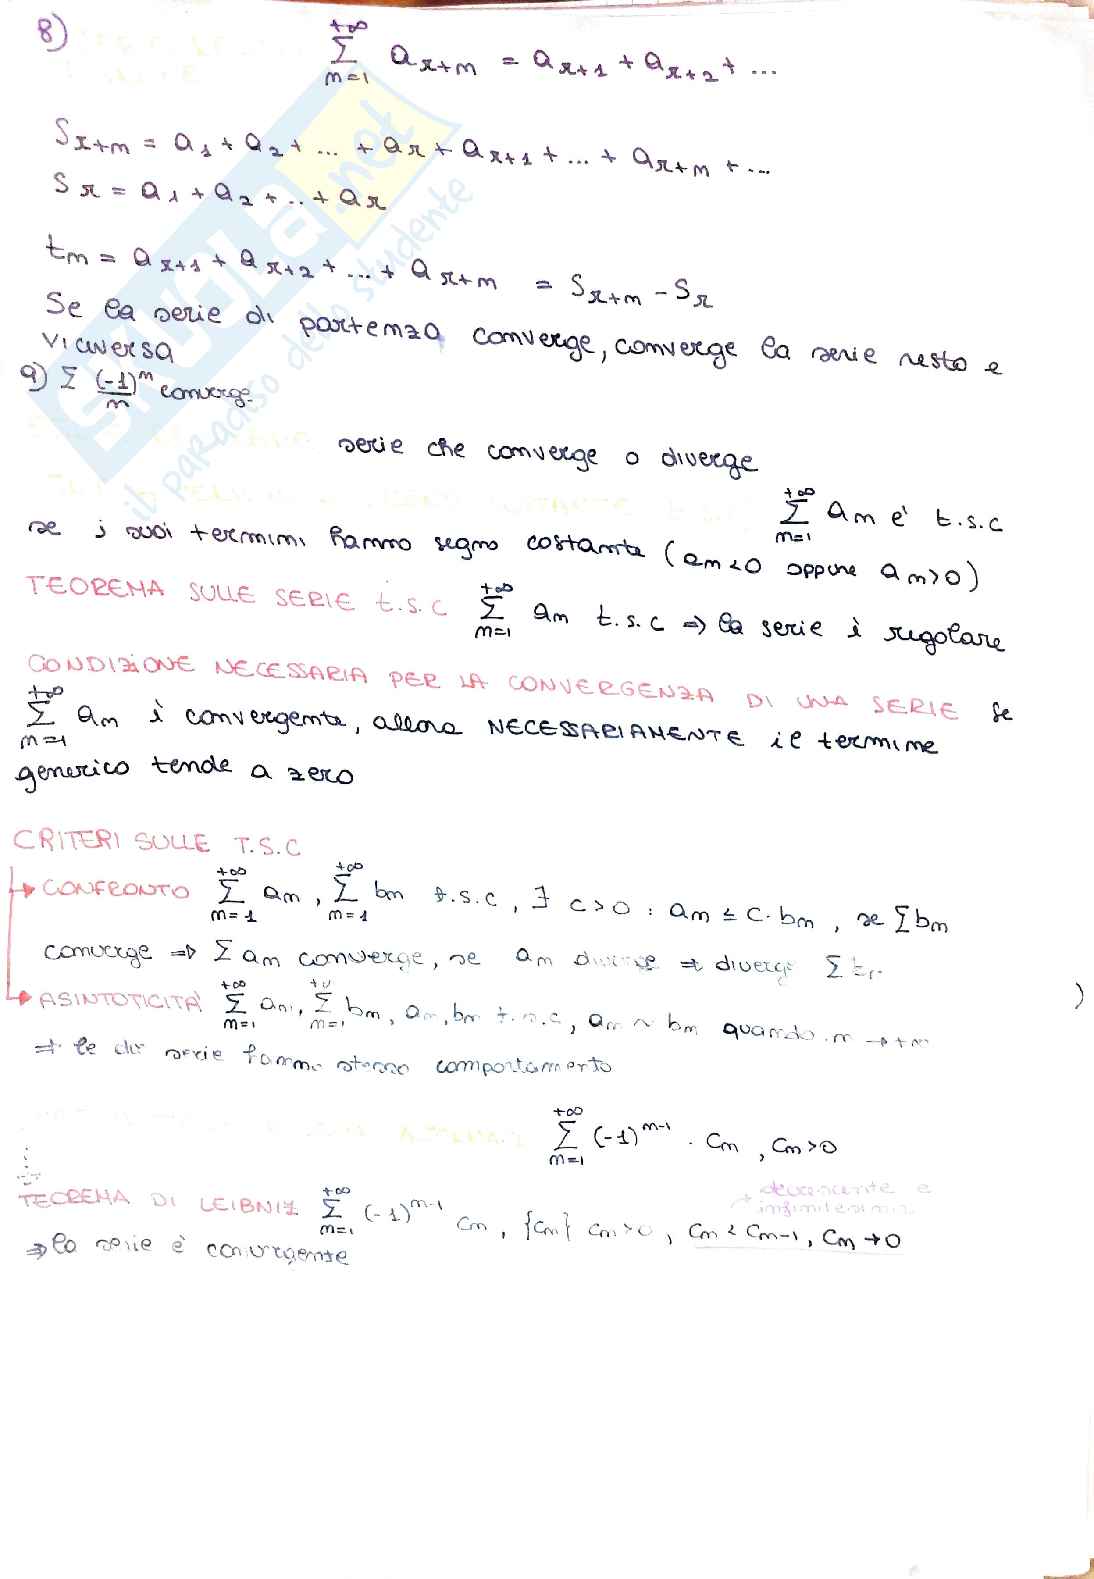 8) $\sum_{n=1}^{+\infty} a_{r+n} = a_{r+1} + a_{r+2} + \ldots$
$S_{r+n} = a_1 + a_2 + \ldots + a_r + a_{r+1} + \ldots + a_{r+n} + \ldots$
$S_r = a_1 + a_2 + .. + a_r$
$t_n = a_{r+1} + a_{r+2} + \ldots + a_{r+n} = S_{r+n} - S_r$
Se la serie di partenza converge, converge la serie resto e
viceversa
9) $\sum \frac{(-1)^n}{n}$ converge.
serie che converge o diverge
$\sum_{n=1}^{+\infty} a_n$ è t.s.c
se i suoi termini hanno segno costante ($a_n < 0$ oppure $a_n > 0$)
TEOREMA SULLE SERIE t.s.c $\sum_{n=1}^{+\infty} a_n$ t.s.c ⇒ la serie è regolare
CONDIZIONE NECESSARIA PER LA CONVERGENZA DI UNA SERIE se
$\sum_{n=1}^{+\infty} a_n$ è convergente, allora NECESSARIAMENTE il termine
generico tende a zero
CRITERI SULLE T.S.C
→ CONFRONTO $\sum_{n=1}^{+\infty} a_n$, $\sum_{n=1}^{+\infty} b_n$ t.s.c, ∃ c>0 : $a_n \leq c \cdot b_n$, se $\sum b_n$
converge ⇒ $\sum a_n$ converge, se $a_n$ diverge ⇒ diverge $\sum b_n$
→ ASINTOTICITÀ $\sum_{n=1}^{+\infty} a_n$, $\sum_{n=1}^{+\infty} b_n$, $a_n, b_n$ t.s.c, $a_n \sim b_n$ quando $n \to +\infty$
⇒ le due serie hanno stesso comportamento
$\sum_{n=1}^{+\infty} (-1)^{n-1} \cdot c_n$, $c_n > 0$
→ decrescente e
infinitesima
TEOREMA DI LEIBNIZ $\sum_{n=1}^{+\infty} (-1)^{n-1} c_n$, $\{c_n\}$ $c_n > 0$, $c_n < c_{n-1}$, $c_n \to 0$
⇒ la serie è convergente
SKUOLA.net
il paradiso dello studente